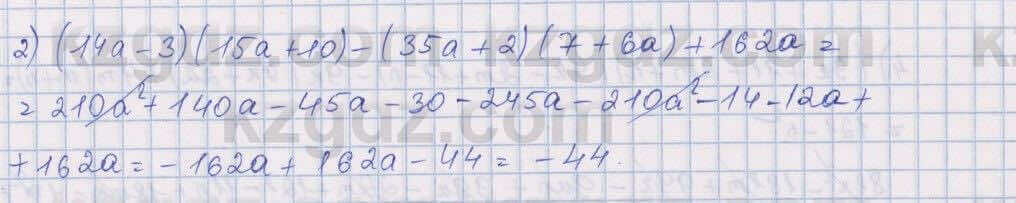 2) (14a - 3)(15a + 10) - (35a + 2)(7 + 6a) + 162a =
= 210a² + 140a - 45a - 30 - 245a - 210a² - 14 - 12a +
+ 162a = - 162a + 162a - 44 = - 44.
kzgdz.com